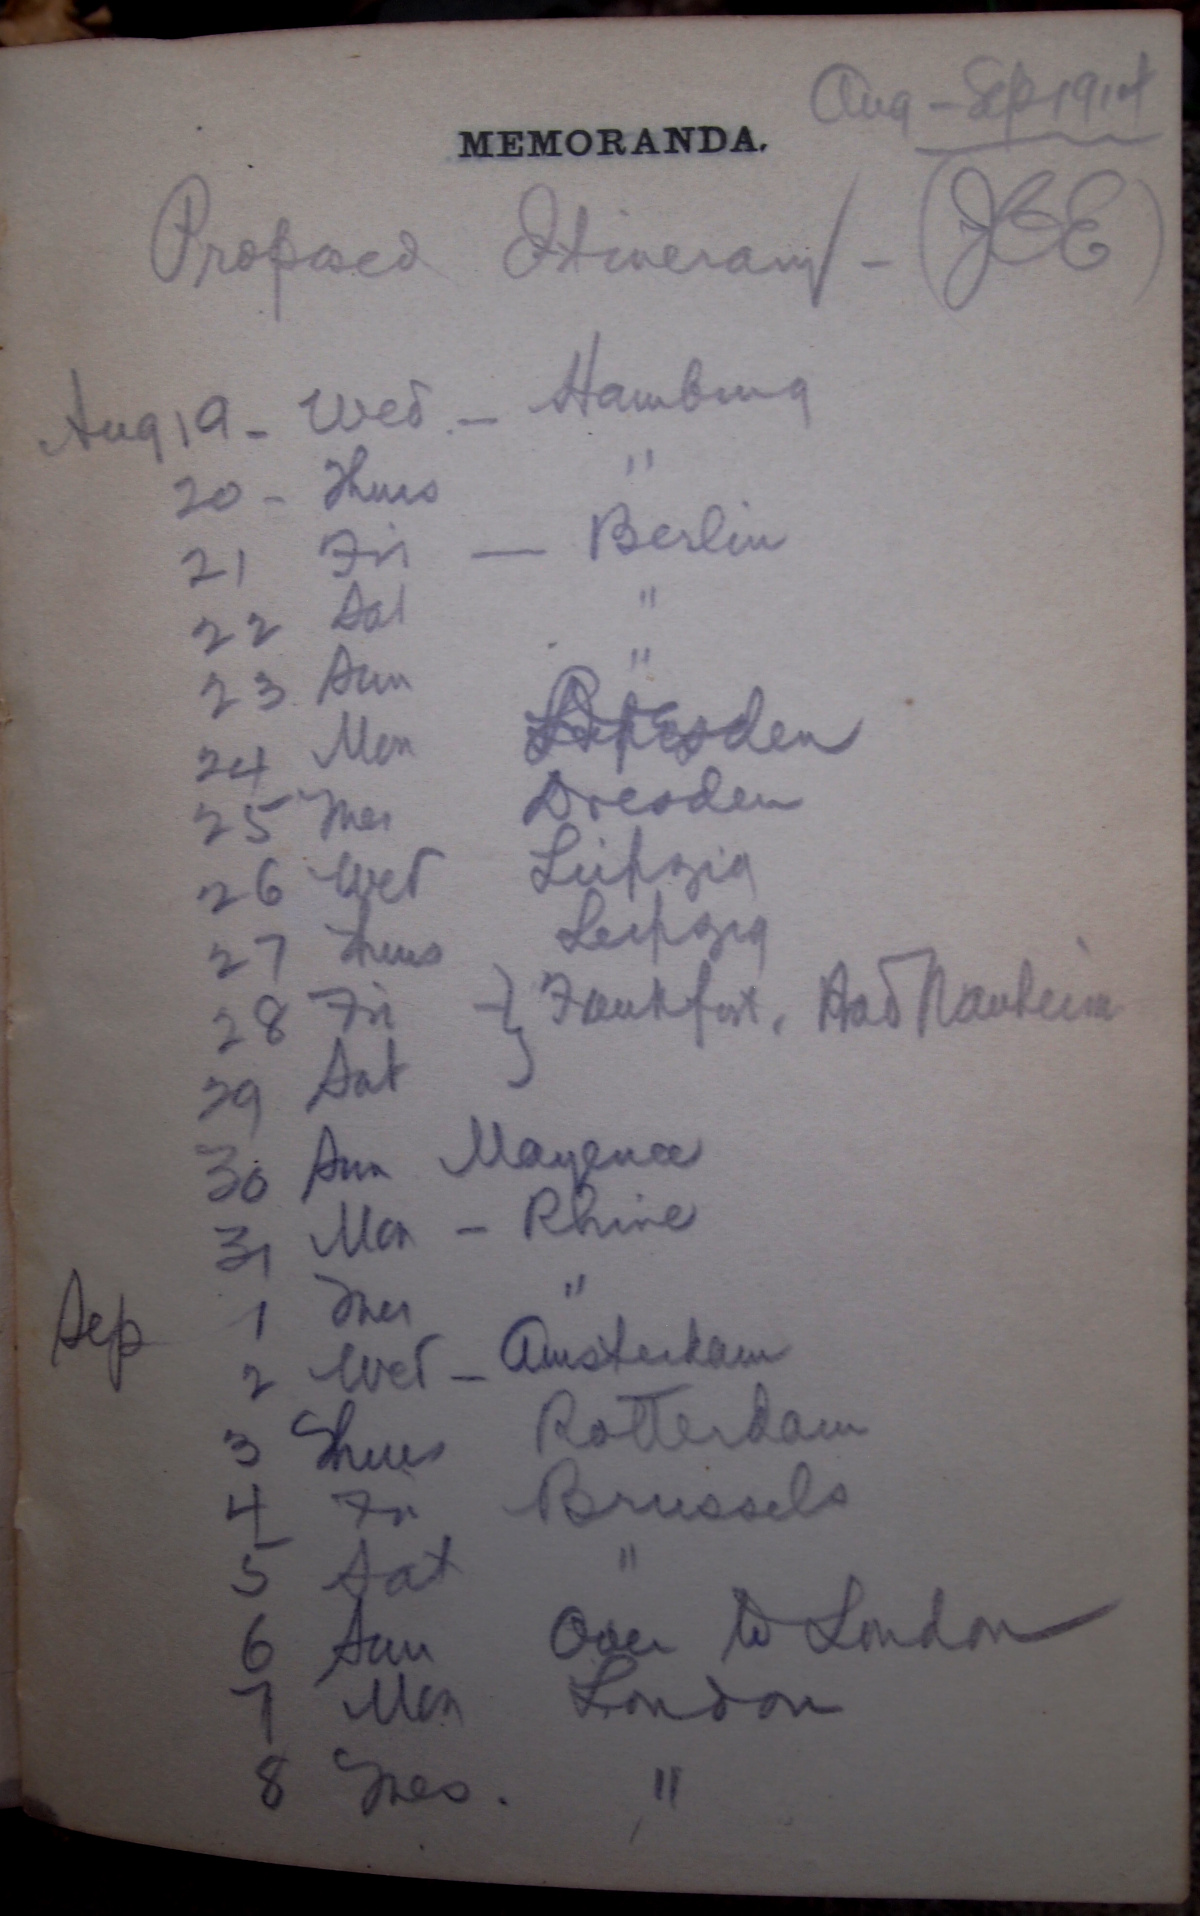 Aug - Sep 1914
MEMORANDA.
Proposed Itinerary - (JCE)
Aug 19 - Wed. - Hamburg
20 - Thurs "
21 Fri — Berlin
22 Sat "
23 Sun "
24 Mon Dresden
25 Tues Dresden
26 Wed Leipzig
27 Thurs Leipzig
28 Fri } Frankfort, Bad Nauheim
29 Sat
30 Sun Mayence
31 Mon - Rhine
Sep 1 Tues "
2 Wed - Amsterdam
3 Thurs Rotterdam
4 Fri Brussels
5 Sat "
6 Sun Over to London
7 Mon London
8 Tues. "